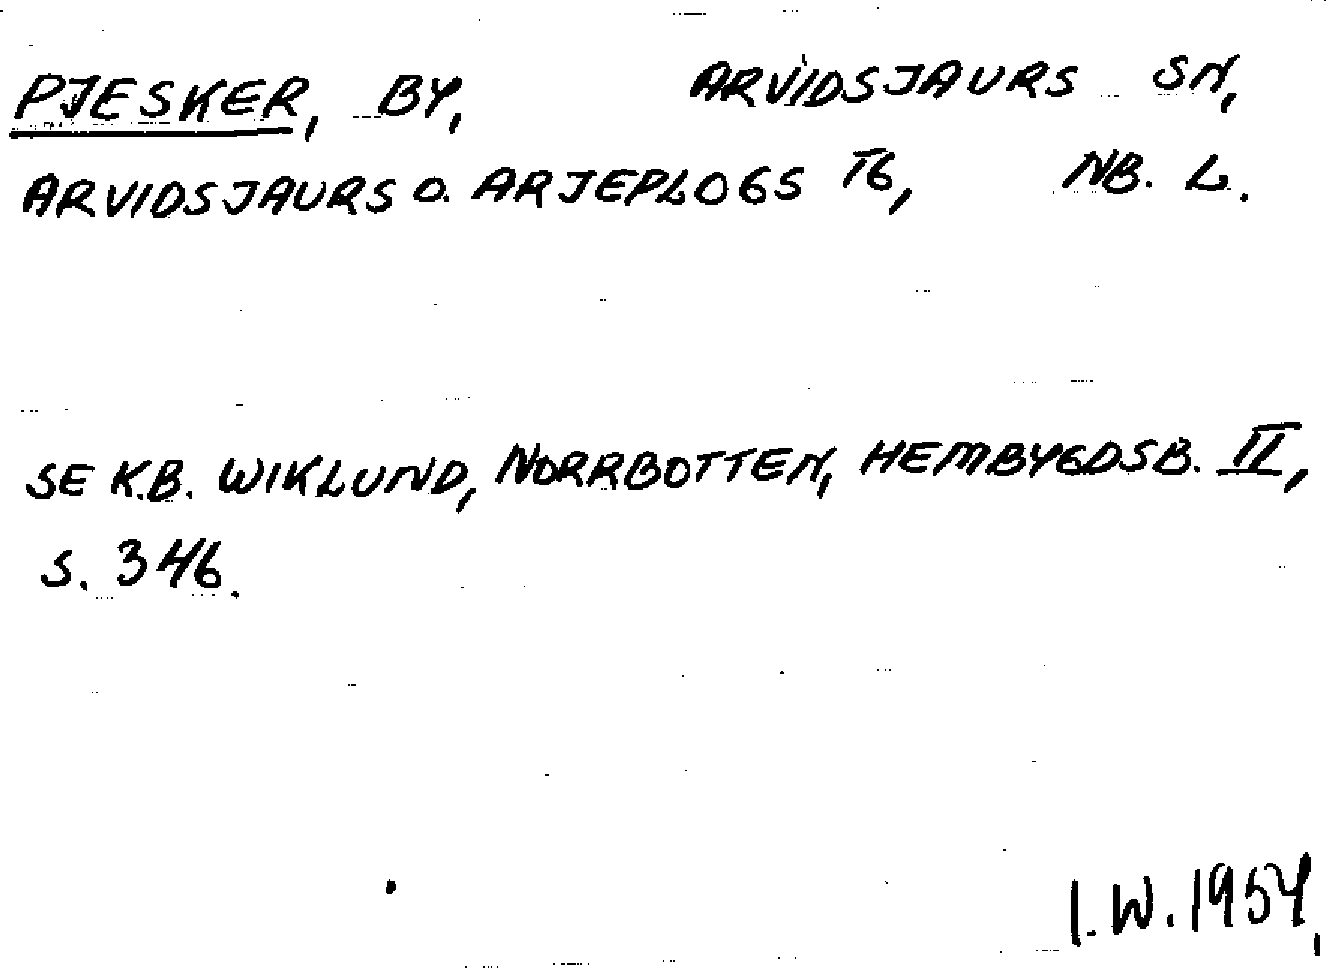 PJESKER, BY, ARVIDSJAURS SN,
ARVIDSJAURS O. ARJEPLOGS TG, NB. L.
SE K.B. WIKLUND, NORRBOTTEN, HEMBYGDSB. II,
S. 346.
I.W. 1954.